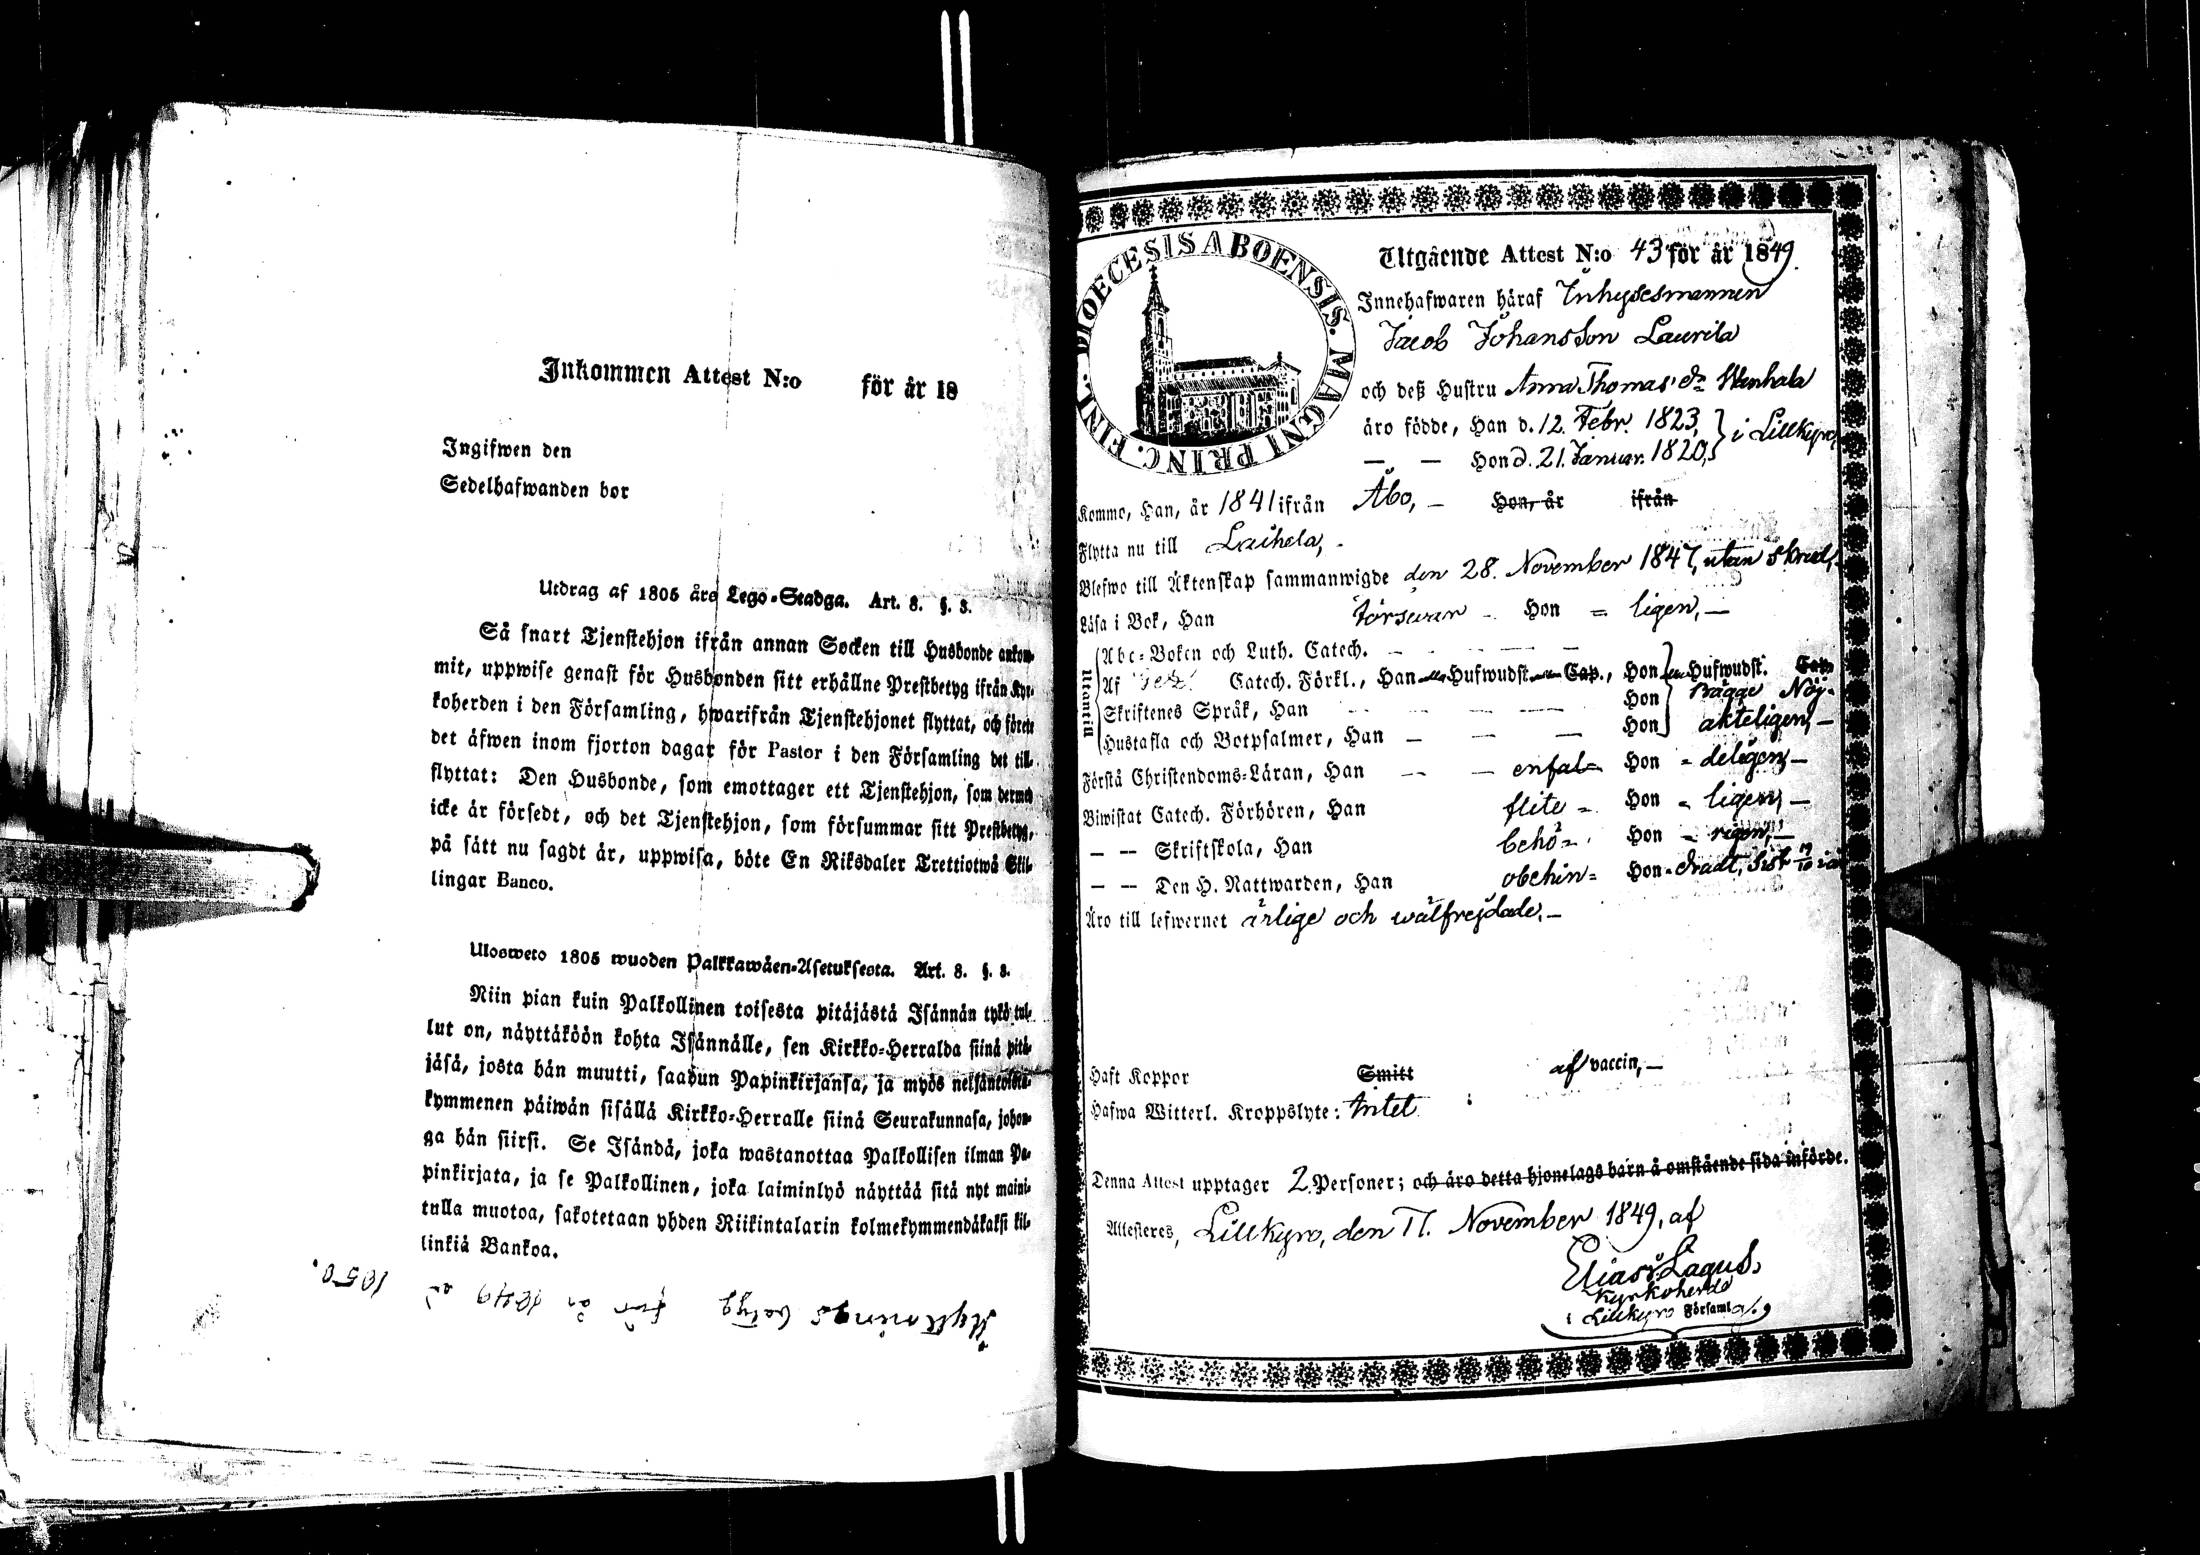 Inkommen Attest N:o för år 18
Ingifwen den
Sedelhafwanden bor
Utdrag af 1805 års Lego-Stadga. Art. 8. §. 3.
Så snart Tjenstehjon ifrån annan Socken till Husbonde ankom-
mit, uppwise genast för Husbonden sitt erhållne Prestbetyg ifrån Kyr-
koherden i den Församling, hwarifrån Tjenstehjonet flyttat, och förete
det äfwen inom fjorton dagar för Pastor i den Församling det till-
flyttat: Den Husbonde, som emottager ett Tjenstehjon, som dermed
icke är försedt, och det Tjenstehjon, som försummar sitt Prestbetyg,
på sätt nu sagdt är, uppwisa, böte En Riksdaler Trettiotwå Skil-
lingar Banco.
Ulosweto 1805 wuoden Palkkawäen-Asetuksesta. Art. 8. §. 3.
Niin pian kuin Palkollinen toisesta pitäjästä Isännän tykö tul-
lut on, näyttäköön kohta Isännälle, sen Kirkko-Herralda siinä pitä-
jäsä, josta hän muutti, saadun Papinkirjansa, ja myös neljäntoista-
kymmenen päiwän sisällä Kirkko-Herralle siinä Seurakunnasa, johon-
ga hän siirsi. Se Isändä, joka wastanottaa Palkollisen ilman Pa-
pinkirjata, ja se Palkollinen, joka laiminlyö näyttää sitä nyt maini-
tulla muotoa, sakotetaan yhden Riikintalarin kolmekymmendäkaksi kil-
linkiä Bankoa.
Flyttnings betyg för år 1849 o
1850.
DIOECESIS ABOENSIS. MAGNI PRINC. FINL.
Utgående Attest N:o 43 för år 1849.
Innehafwaren häraf Inhysesmannen
Jacob Johansson Laurila
och deß Hustru Anna Thomas'dr Wenhala
äro födde, Han d. 12. Febr. 1823, } i Lillkyro,
— — Hon d. 21. Januar. 1820,
Kommo, Han, år 1841 ifrån Åbo, – Hon, år ifrån
Flytta nu till Laihela, –
Blefwo till Äktenskap sammanwigde den 28. November 1847, utan skrud,
Läsa i Bok, Han försvar – Hon = ligen, —
Utantill
Abc-Boken och Luth. Catech. — — — —
Af Catech. Förkl., Han Hufwudst. Cap., Hon Hufwudst. Cap.
Skriftenes Språk, Han — — — Hon Bägge Nöj-
Hustafla och Botpsalmer, Han — — — Hon akteligen, —
Förstå Christendoms-Läran, Han — — enfal= Hon = deligen, —
Biwistat Catech. Förhören, Han flite = Hon = ligen, —
— — Skriftskola, Han behö = Hon = rigen, —
— — Den H. Nattwarden, Han obehin= Hon = dradt, sist
Äro till lefwernet ärlige och wälfrejdade, —
Haft Koppor Smitt af vaccin, —
Hafwa Witterl. Kroppslyte: Intet
Denna Attest upptager 2. Personer; och äro detta hjonelags barn å omstående sida införde.
Attesteres, Lillkyro, den 11. November 1849, af
Elias Lagus,
Kyrkoherde
i Lillkyro Församl.